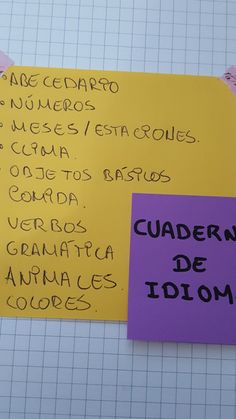 • ABECEDARIO
• NÚMEROS
• MESES/ESTACIONES.
• CLIMA.
• OBJETOS BÁSICOS
COMIDA.
VERBOS
GRAMÁTICA
ANIMALES.
COLORES.
CUADERN
DE
IDIOM